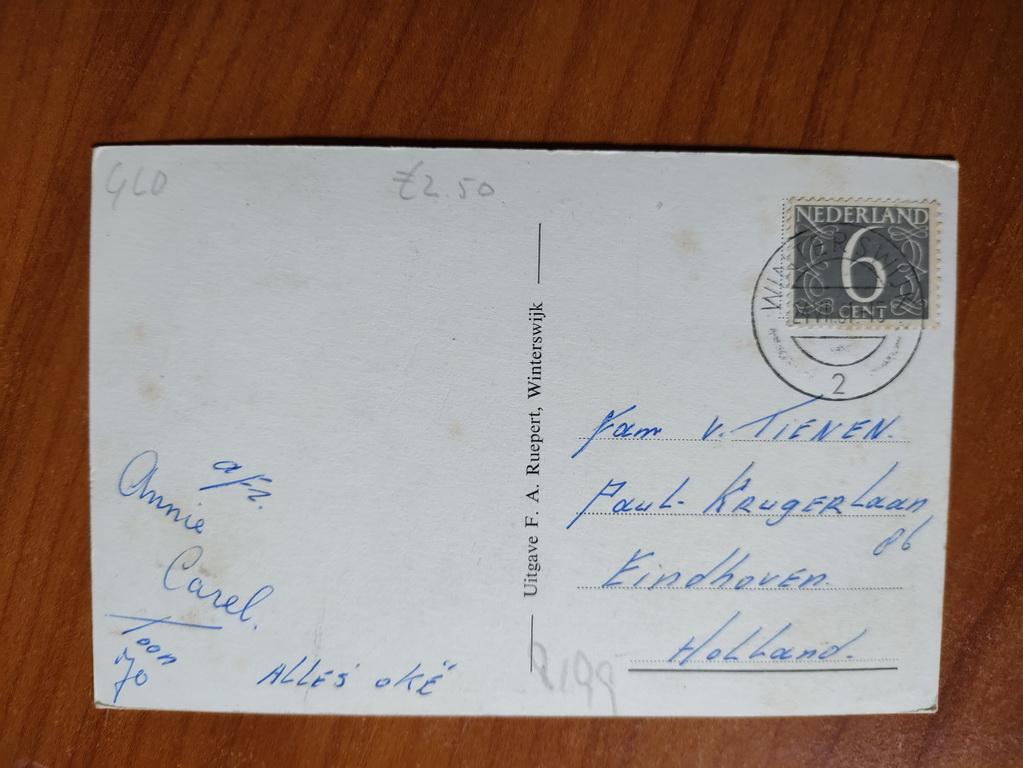 GLD
£2.50
NEDERLAND
6
CENT
WINTERSWIJK
2
Uitgave F. A. Ruepert, Winterswijk
Fam v. TIENEN.
PAUL-KRUGERLaan
86
Eindhoven.
Holland.
afz.
Annie
Carel.
Toon
Jo
ALLES OKÉ